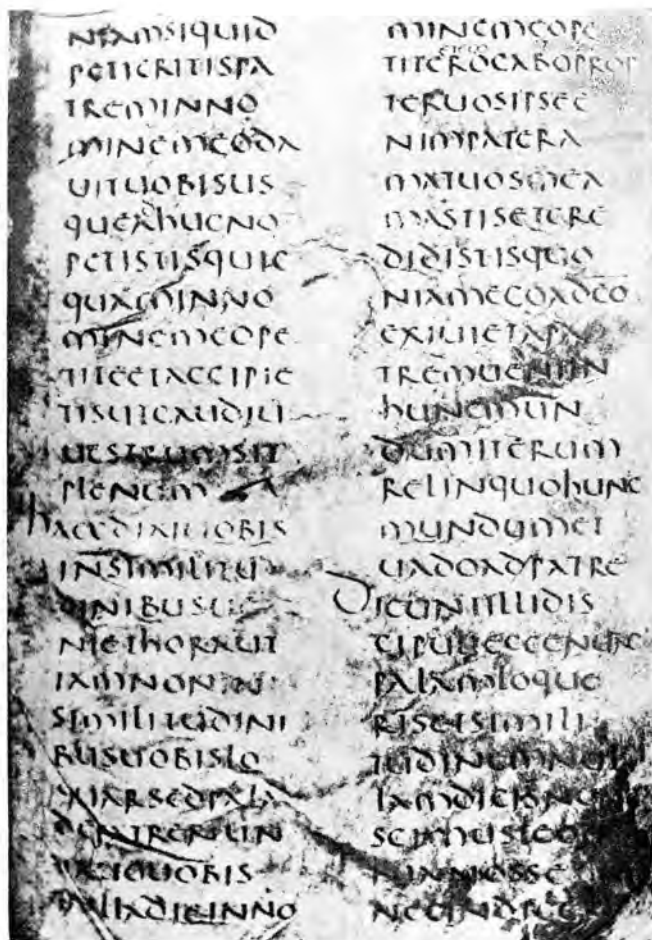 NIAMSIQUID
PETIERITISPA
TREMINNO
MINEMEODA
UITUOBISUS
QUEADHUCNO
PETISTISQUIC
QUAMINNO
MINEMEOPE
TITEETACCIPIE
TISUTGAUDIU
UESTRUMSIT
PLENUM
HAECDIXIUOBIS
INSIMILITU
DINIBUSUE
NIETHORAUT
IAMNONIN
SIMILITUDINI
BUSUOBISLO
SEDPALA
UOBIS
DIEINNO
MINEMEOPE
TITEEGOROGABOPROP
TERUOSIPSEE
NIMPATERA
MATUOSMEA
MASTISETCRE
DIDISTISQUO
NIAMEGOADEO
EXIUIETAPA
TREMUENIIN
HUNCMUN
DUMITERUM
RELINQUOHUNC
MUNDUMET
UADOADPATRE
DICUNTILLIDIS
CIPULIECCENUNC
PALAMLOQUE
RISETSIMILI
TUDINEM
IAMDICIS
SCIMUS